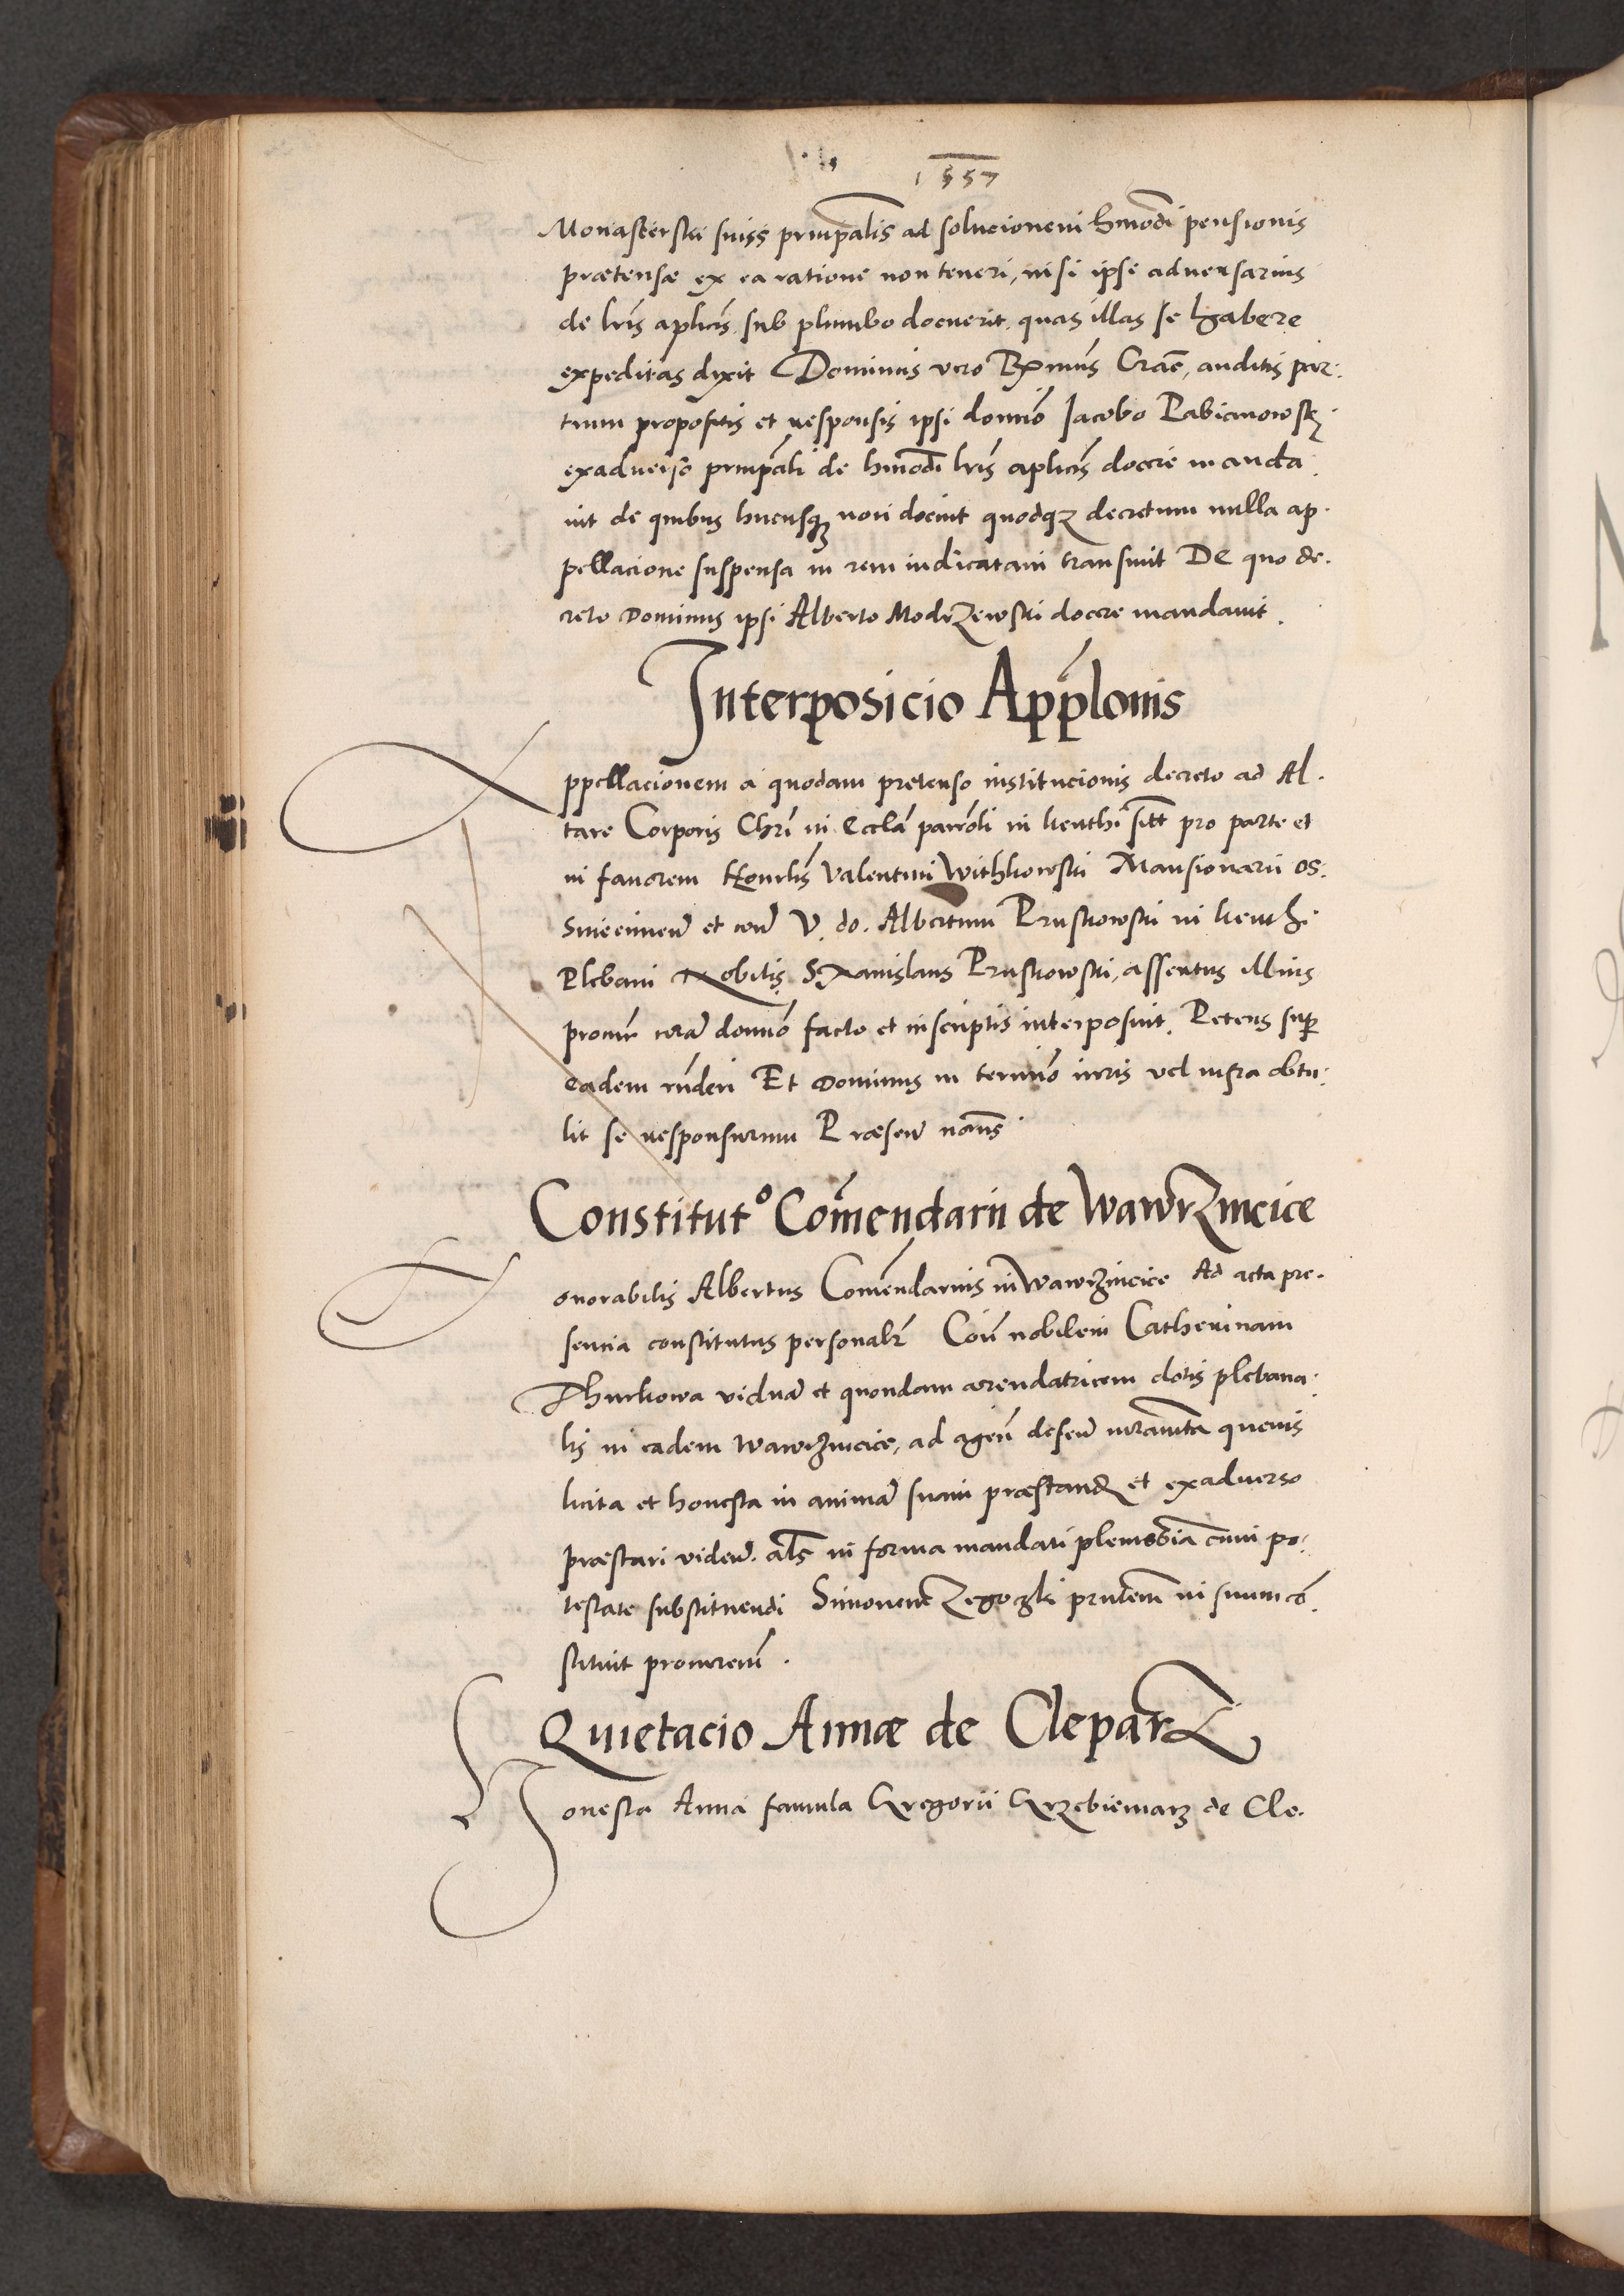 1557
Monasterski suiss prinpalis ad solucionem hmodi pensionis
prætensæ ex ea ratione non teneri, nisi ipse adversarius
de lris aplicis sub plumbo docuerit quas illas se habere
expeditas dixit Dominus vero Rxmus Crac̃, auditis par:
tium propositis et responsis ipsi domio Jacobo Pabianowsk
exadverso prinpali de hmodi lris aplicis docere manda
vit de quibus hucusq; non docuit quodq; decretum nulla ap.
pellacione suspensa in rem iudicatam transivit De quo de.
creto Dominus ipsi Alberto Modrzewski docere mandavit.
Interposicio Applonis
Appellacionem a quodam pretenso institucionis decreto ad Al.
tare Corporis Chri in Eccla parroli in Kenthi sitt pro parte et
in favorem Honrlis Valentini Withkowski Mansionarii os:
Swieimen̄ et con̄ V. do. Albertum Pruskowski in Kenthi
Plebani Nobilis Stanislaus Pruskowski, assertus illius
procur corā domio facto et in scriptis interposuit. Petens sup
eadem rnderi Et Dominus in termio iuris vel infra obtu:
lit se responsurum Præsen̄ noms
Constitutº Comendarii de Wawrzincice
Honorabilis Albertus Comendarius in Wawrzincice Ad acta pre.
sencia constitutus personalr Con̄ nobilem Catherinam
Thurkowa viduā et quondam arendatricem dotis plebana:
lis in eadem Wawrzincice, ad agen̄ defen̄ iuramta quevis
licita et honesta in animā suam præstand et exadverso
præstari viden̄. als in forma mandati plenissia cum po:
testate substituendi Simonem Zegoczki prntem in suum cō.
stituit procurem.
Quietacio Annæ de Cleparz
Honesta Anna famula Gregorii Grzebieniarz de Cle.